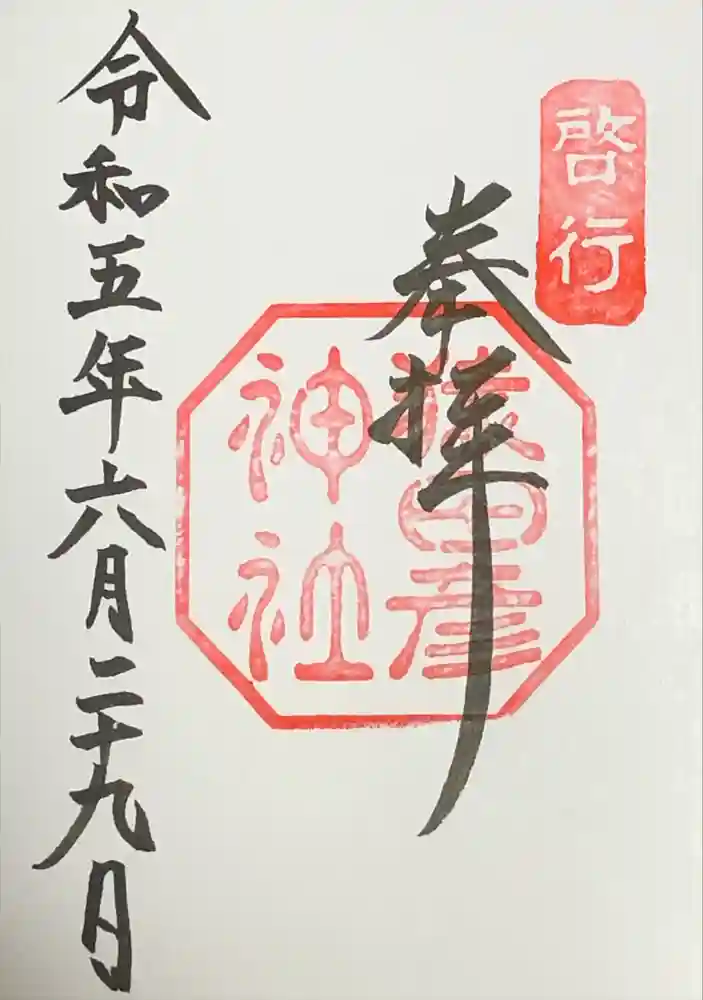 啓行
奉拝
猿田彦
神社
令和五年六月二十九日